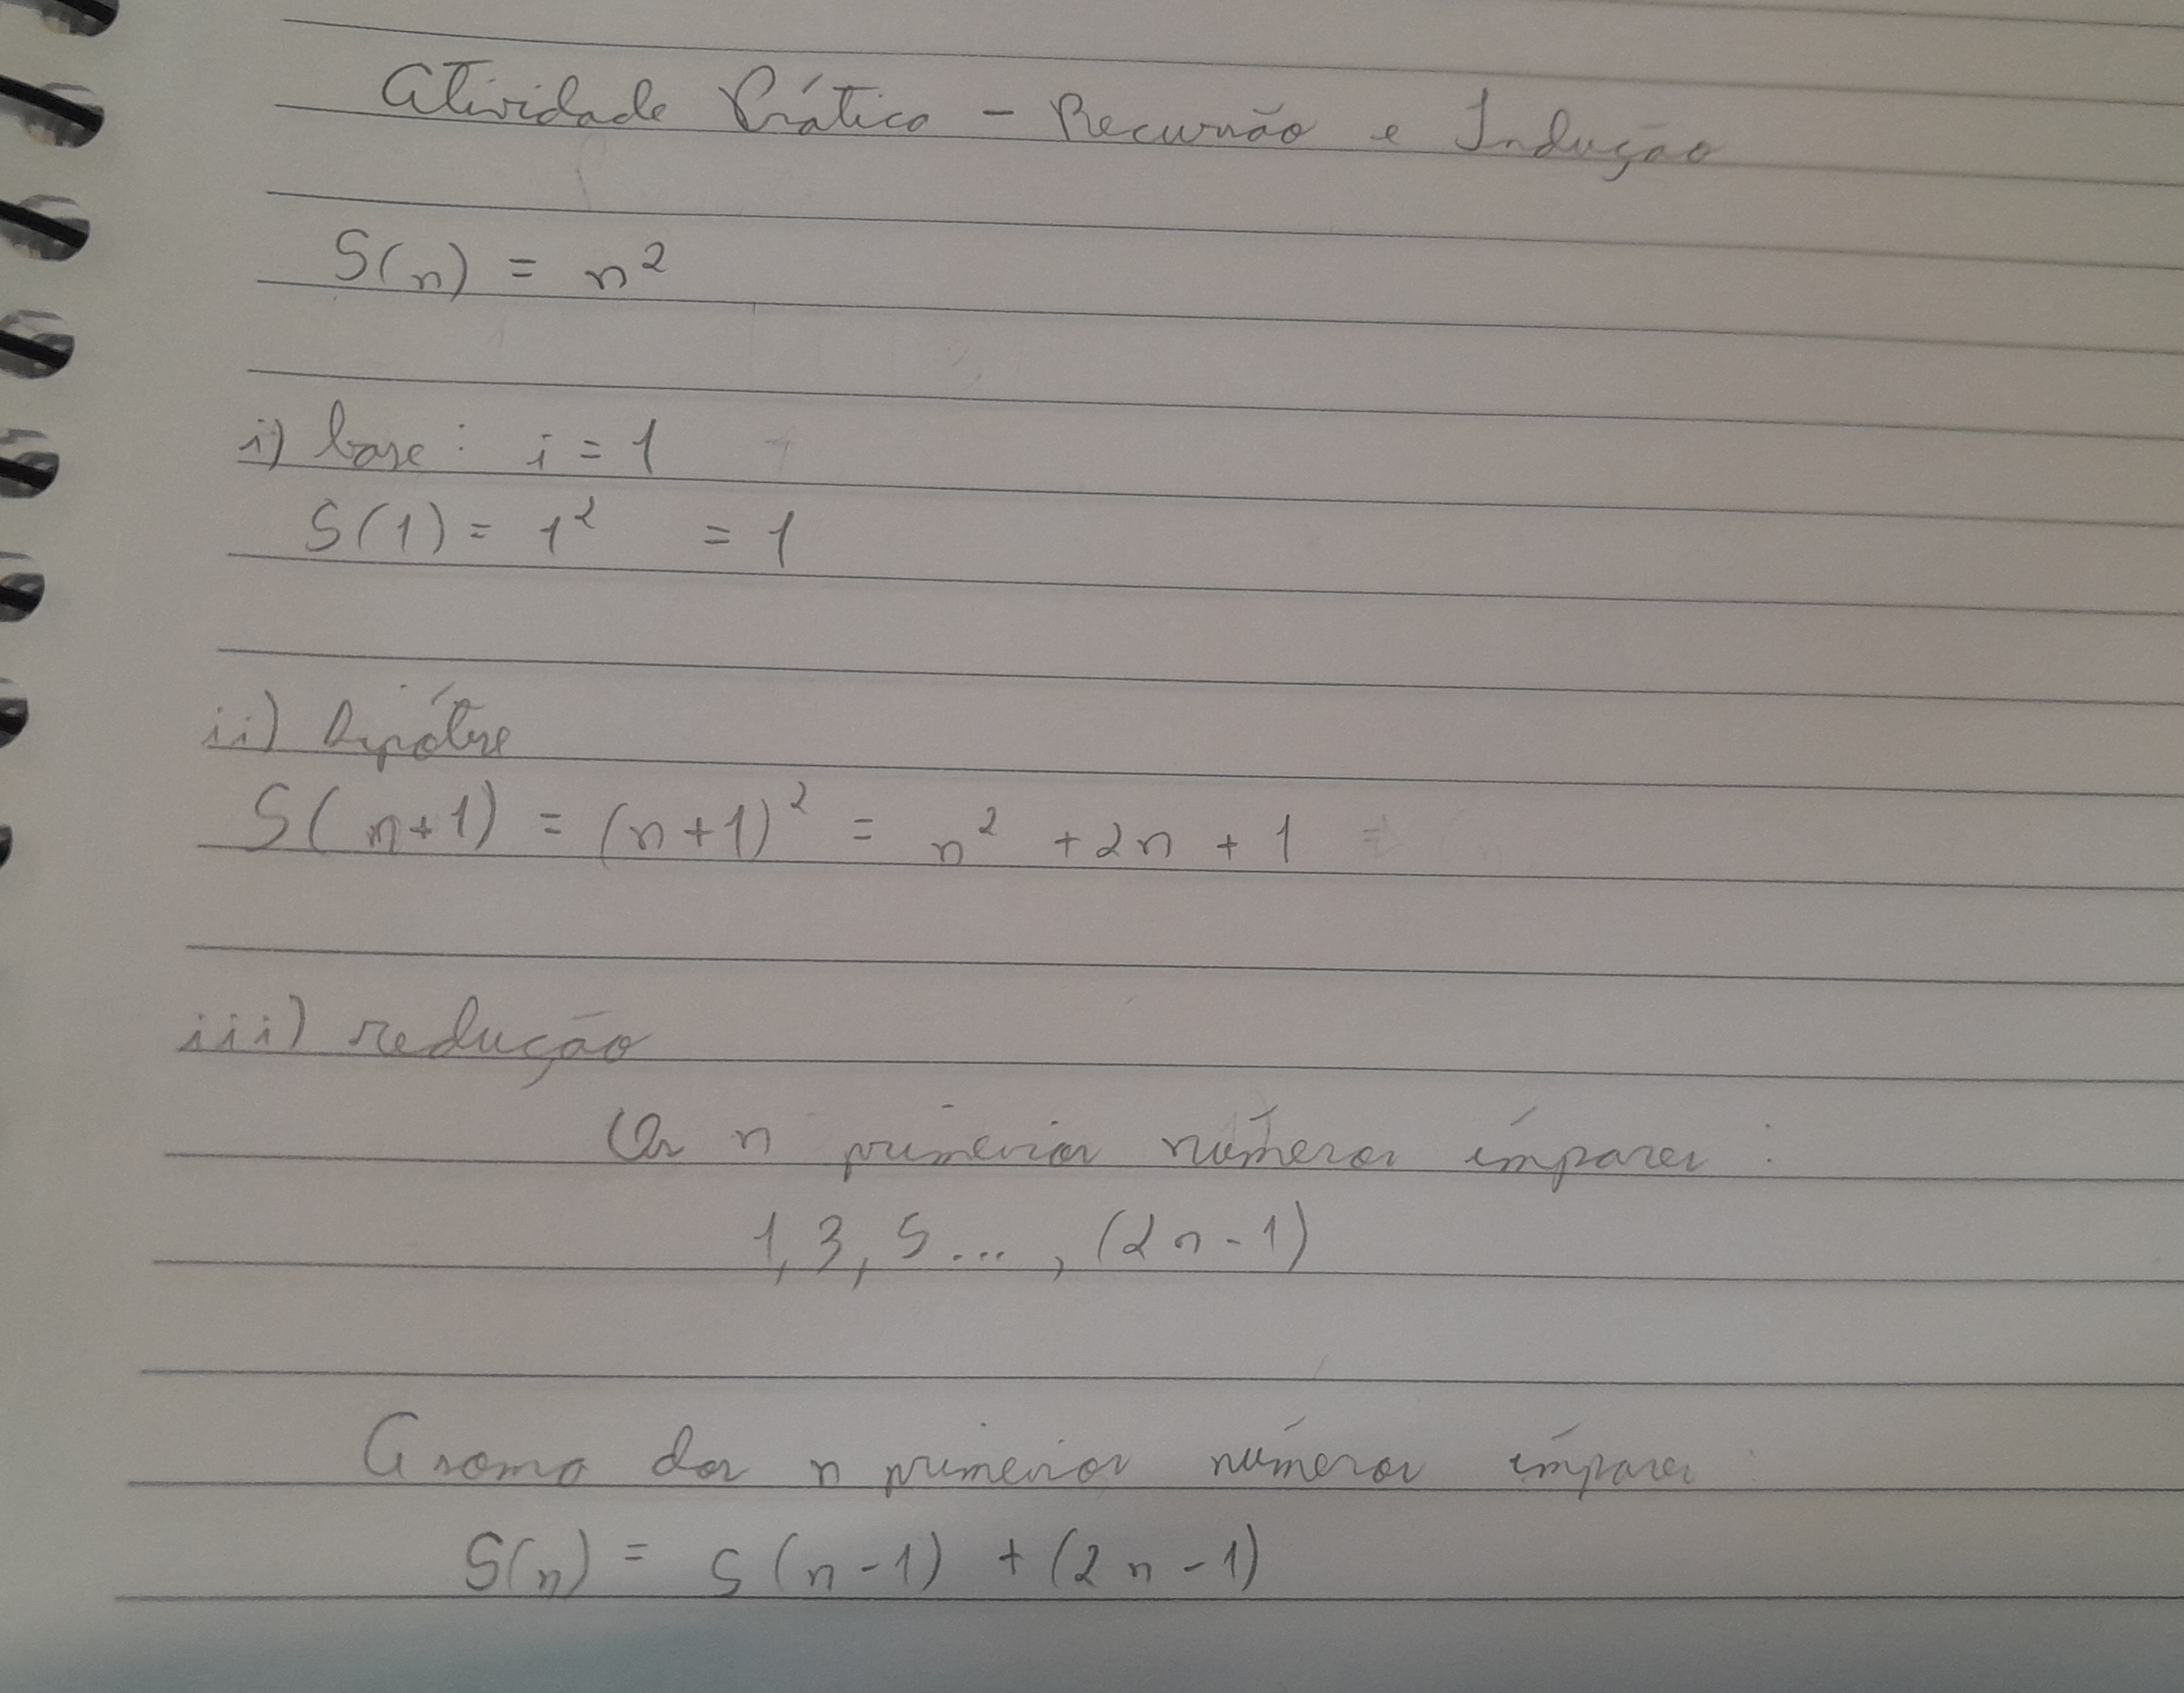 Atividade Prática - Recursão e Indução
S(n) = n²
i) base: i = 1
S(1) = 1² = 1
ii) hipótese
S(n+1) = (n+1)² = n² + 2n + 1
iii) redução
Os n primeiros números ímpares:
1, 3, 5..., (2n-1)
A soma dos n primeiros números ímpares
S(n) = S(n-1) + (2n-1)